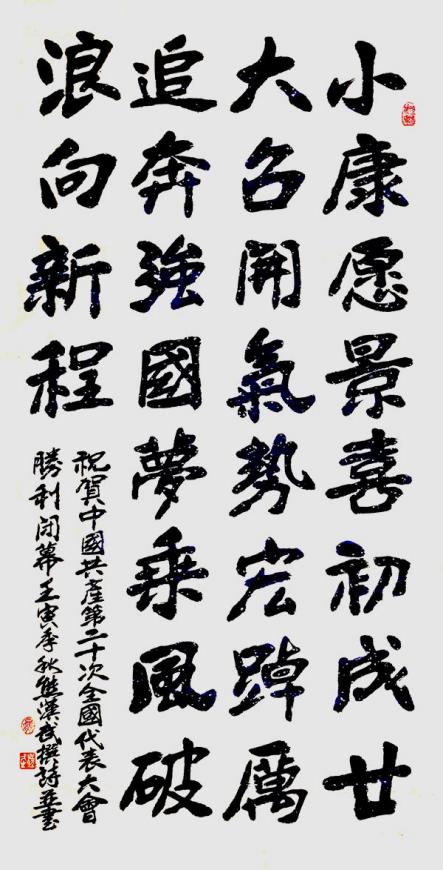 小康愿景喜初成廿
大召開氣勢宏踔厲
追奔強國夢乘風破
浪向新程
祝賀中國共產第二十次全國代表大會
勝利闭幕壬寅季秋熊漢武撰詩並書